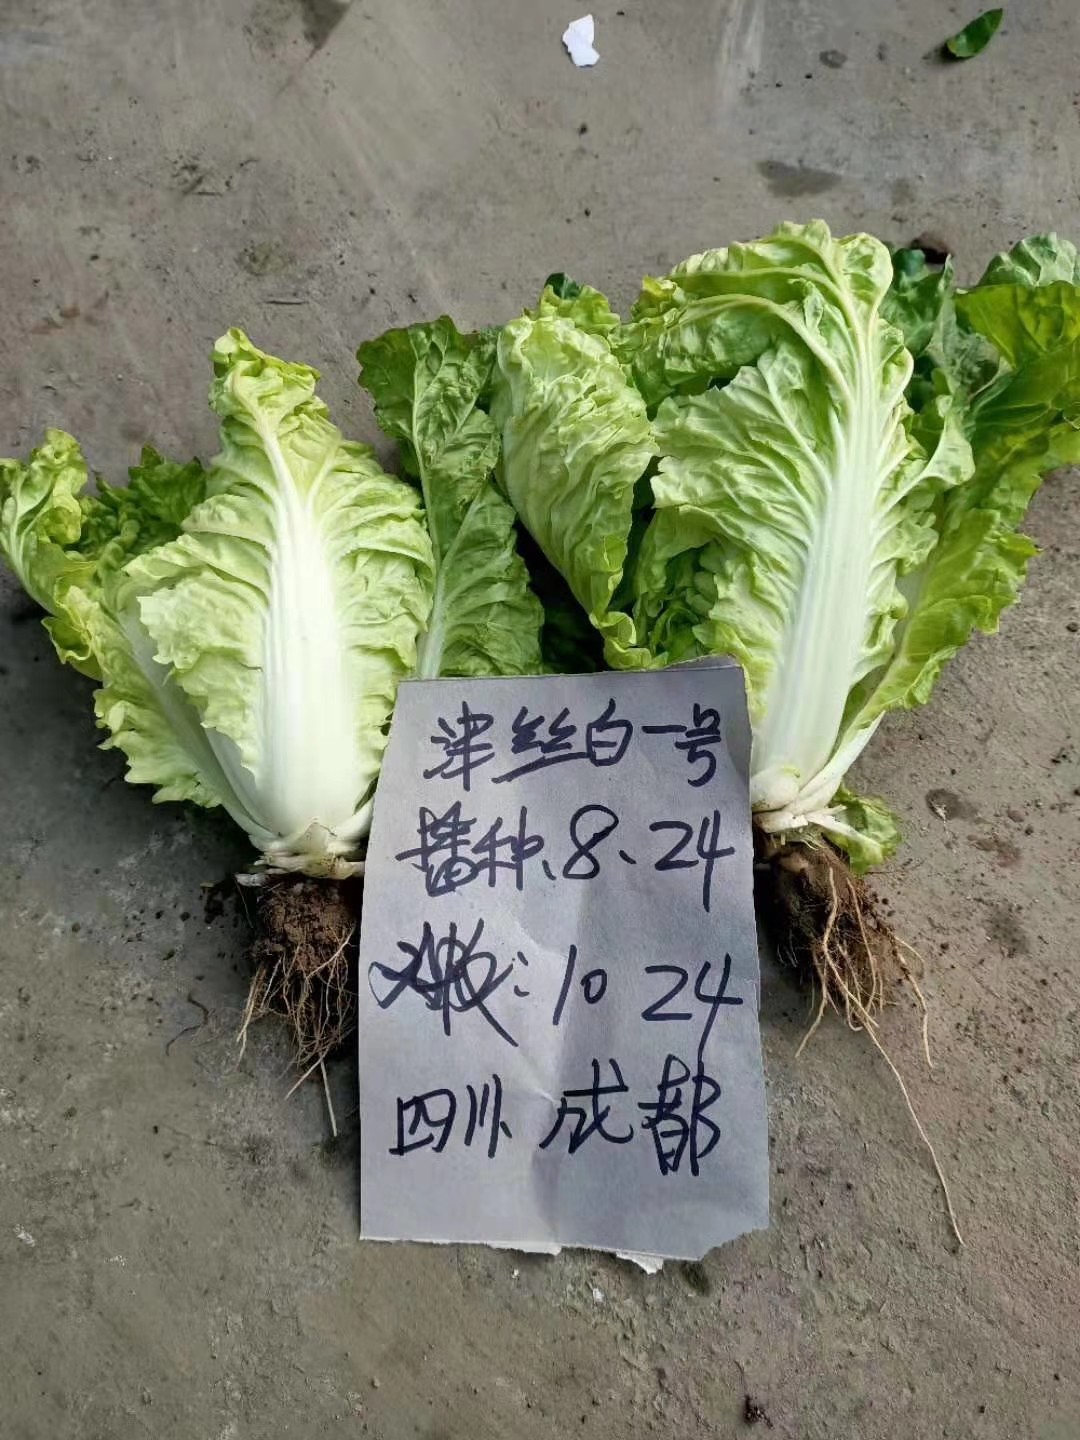 丝白一号
播种、8、24
收:10 24
四川、成都